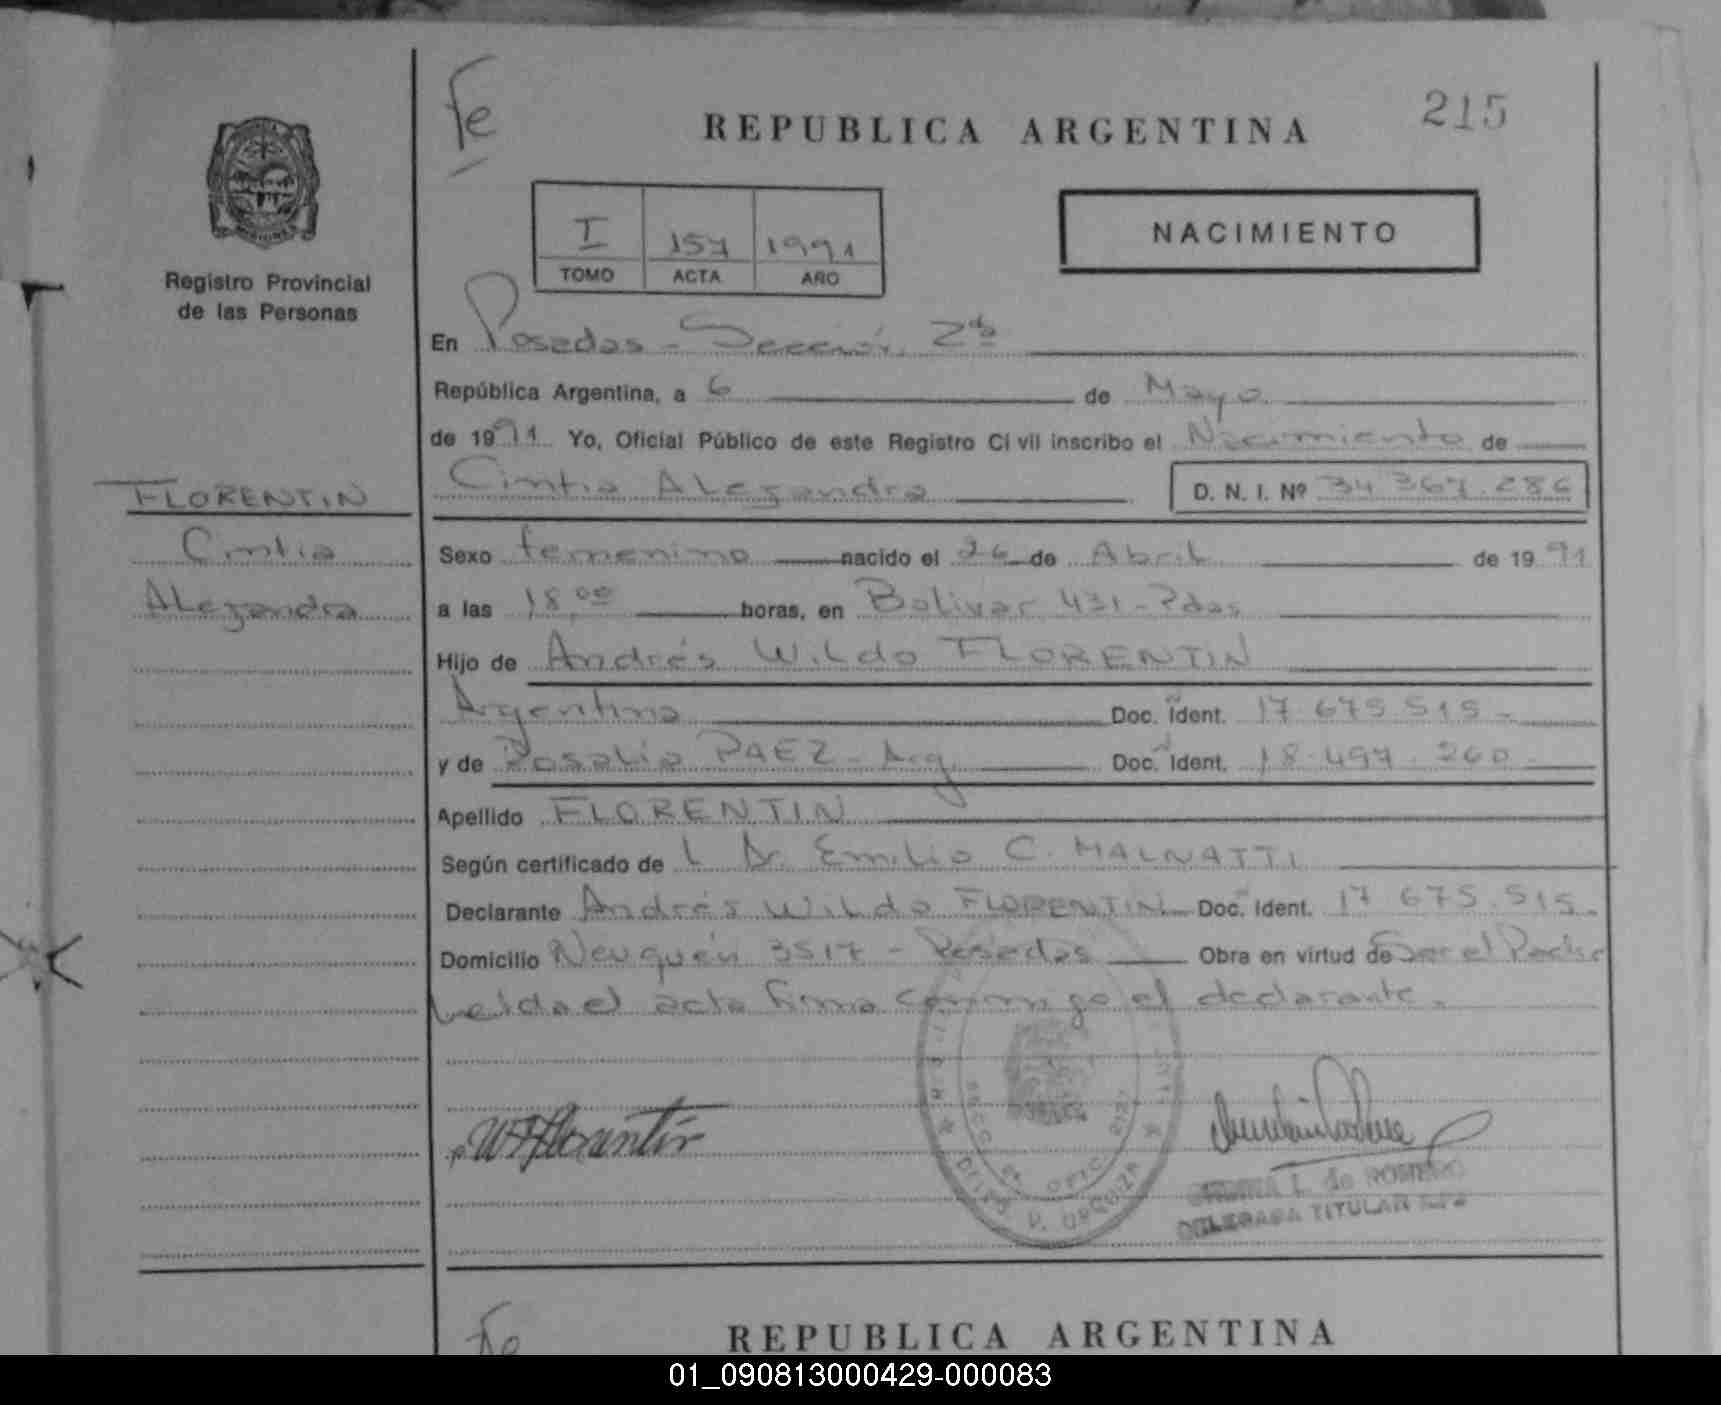 Fe
REPUBLICA ARGENTINA
215
I 157 1991
TOMO ACTA AÑO
NACIMIENTO
MISIONES
Registro Provincial
de las Personas
En Posadas - Sección 2da
República Argentina, a 6 de Mayo
de 1991 Yo, Oficial Público de este Registro Civil inscribo el Nacimiento de
Cintia Alejandra D. N. I. Nº 34 367.286
FLORENTIN
Cintia
Alejandra
Sexo femenino nacido el 26 de Abril de 1991
a las 18,00 horas, en Bolivar 431 - Pdas
Hijo de Andrés Wildo FLORENTIN
Argentina Doc. Ident. 17 675 515 -
y de Rosalia PAEZ - Arg. Doc. Ident. 18.497.260 -
Apellido FLORENTIN
Según certificado de L Dr Emilio C. MALNATTI
Declarante Andrés Wildo FLORENTIN Doc. Ident. 17 675.515.-
Domicilio Neuquén 3517 - Posadas Obra en virtud de Ser el Padre
Leida el acta firma conmigo el declarante.
W Florentin
DELEG. J. URQUIZA
L. de ROMERO
DELEGADA TITULAR
Fe
REPUBLICA ARGENTINA
01_090813000429-000083